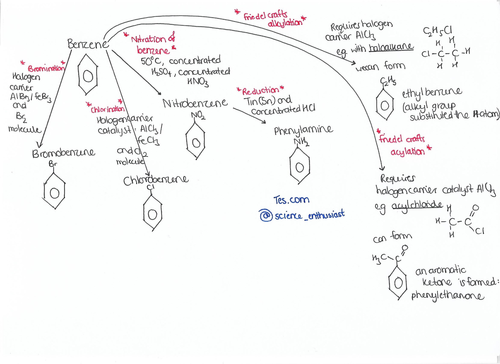 Benzene
*Bromination*
Halogen
carrier
AlBr3/FeBr3
and
Br2
molecule
Bromobenzene
Br
*Chlorination*
Halogen carrier
catalyst: AlCl3/
FeCl3
and Cl2
molecule
Chlorobenzene
Cl
*Nitration of
benzene*
50°C, concentrated
H2SO4, concentrated
HNO3
Nitrobenzene
NO2
*Reduction*
Tin(Sn) and
concentrated HCl
Phenylamine
NH2
Tes.com
@science_enthusiast
*Friedel crafts
alkylation*
Requires halogen
carrier AlCl3
eg with haloalkane
C2H5Cl
H H
Cl-C-C-H
H H
can form
C2H5
ethylbenzene
(alkyl group
substituted the H atom)
*Friedel crafts
acylation*
Requires
halogen carrier catalyst AlCl3
eg acylchloride
H O
H-C-C
H Cl
can form
H3C O
C
an aromatic
ketone is formed:
phenylethanone